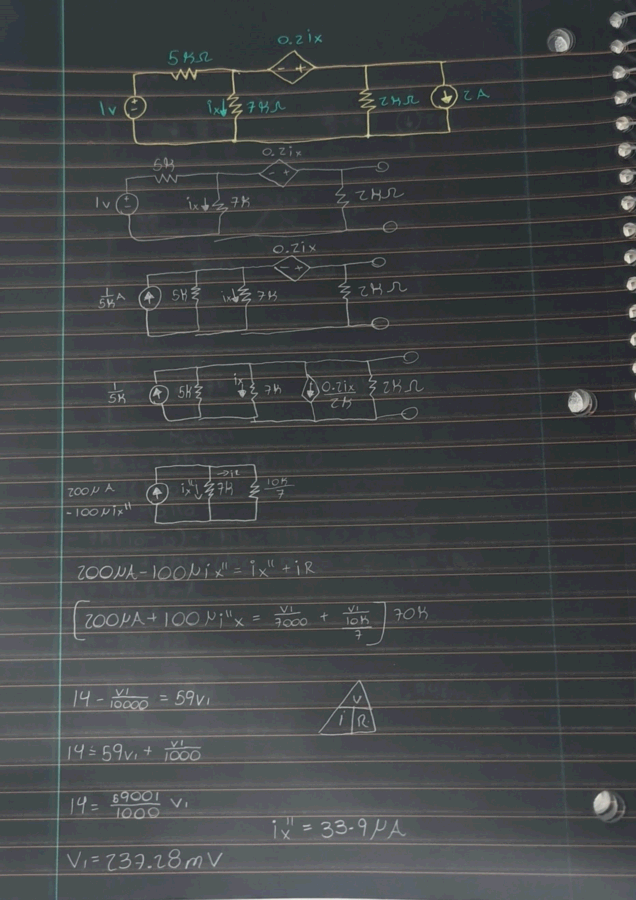 0.2ix
5KΩ
- +
1v + - ix↓ 7KΩ 2KΩ ↓ 2A
0.2ix
5K
- +
1v + - ix↓ 7K 2KΩ
0.2ix
- +
1/5K A ↑ 5K ix↓ 7K 2KΩ
1/5K ↑ 5K ix↓ 7K ↓ 0.2ix/2K 2KΩ
→iR
200μA ↑ ix''↓ 7K 10K/7
-100μix''
200μA-100μix''= ix''+iR
[200μA+100μi''x = V1/7000 + V1/(10K/7)] 70K
14 - V1/10000 = 59V1
V
i R
14=59V1+ V1/1000
14= 59001/1000 V1
ix''= 33.9μA
V1=237.28mV